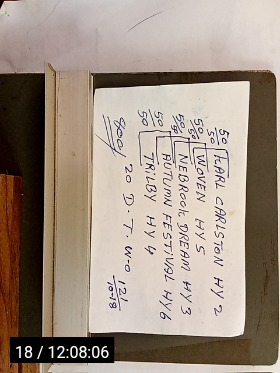 50/50 KARL CARLSTON HY 2
50/50 WOVEN HY 5
50/50 NEBROOK DREAM HY 3
AUTUMN FESTIVAL HY 6
50/50 TRILBY HY 4
20 D. T. W-O
800/
121
10-18
18 / 12:08:06